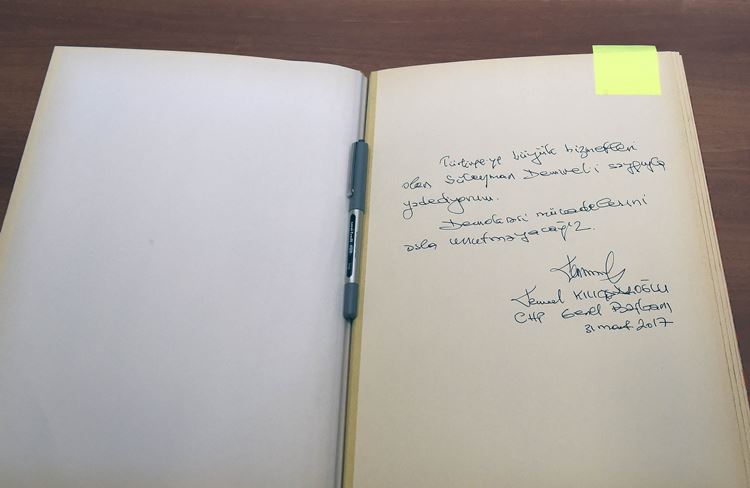 Türkiye'ye büyük hizmetleri
olan Süleyman Demirel'i saygıyla
yadediyorum.
Demokrasi mücadelerini
asla unutmayacağız.
Kemal KILIÇDAROĞLU
CHP Genel Başkanı
31 mart 2017